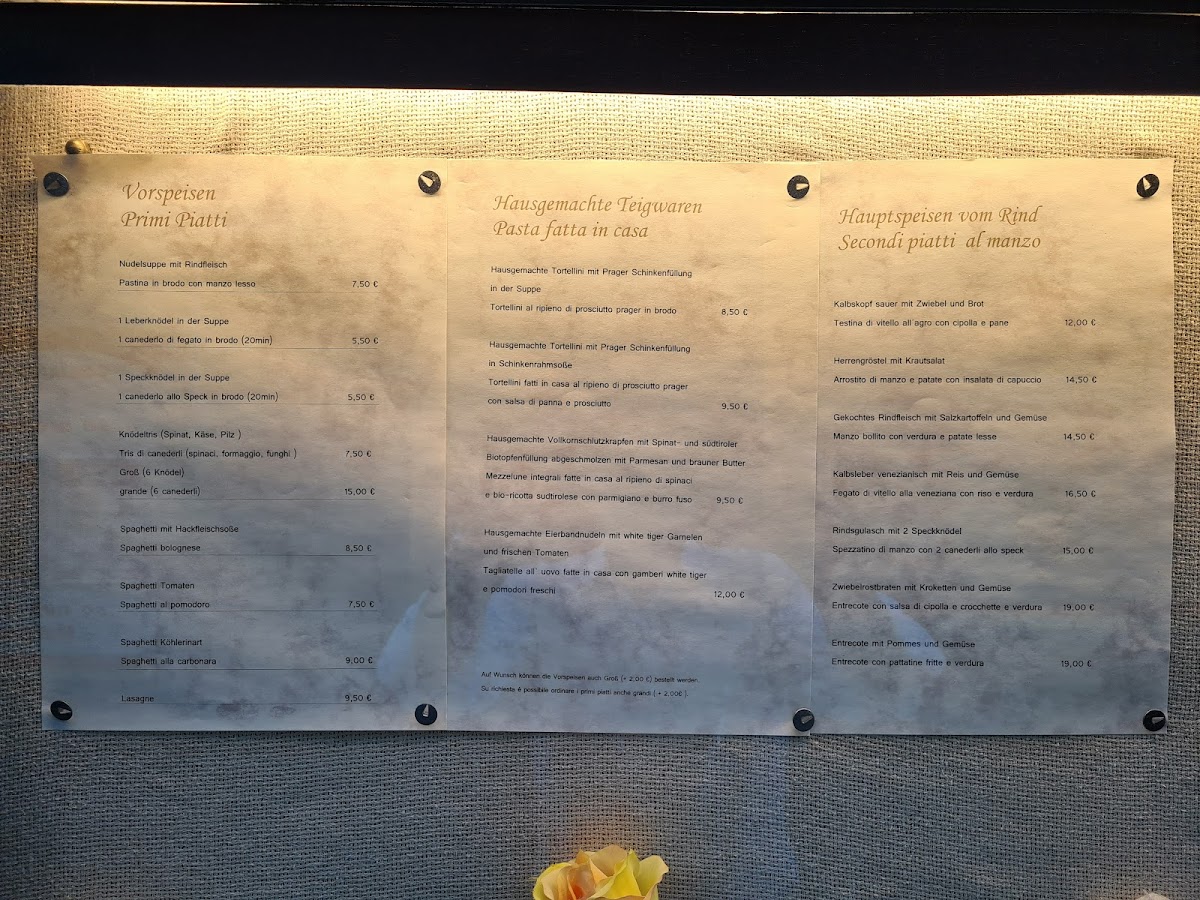 Vorspeisen
Primi Piatti
Nudelsuppe mit Rindfleisch
Pastina in brodo con manzo lesso 7,50 €
1 Leberknödel in der Suppe
1 canederlo di fegato in brodo (20min) 5,50 €
1 Speckknödel in der Suppe
1 canederlo allo Speck in brodo (20min) 5,50 €
Knödeltris (Spinat, Käse, Pilz )
Tris di canederli (spinaci, formaggio, funghi ) 7,50 €
Groß (6 Knödel)
grande (6 canederli) 15,00 €
Spaghetti mit Hackfleischsoße
Spaghetti bolognese 8,50 €
Spaghetti Tomaten
Spaghetti al pomodoro 7,50 €
Spaghetti Köhlerinart
Spaghetti alla carbonara 9,00 €
Lasagne 9,50 €
Hausgemachte Teigwaren
Pasta fatta in casa
Hausgemachte Tortellini mit Prager Schinkenfüllung
in der Suppe
Tortellini al ripieno di prosciutto prager in brodo 8,50 €
Hausgemachte Tortellini mit Prager Schinkenfüllung
in Schinkenrahmsoße
Tortellini fatti in casa al ripieno di prosciutto prager
con salsa di panna e prosciutto 9,50 €
Hausgemachte Vollkornschlutzkrapfen mit Spinat- und südtiroler
Biotopfenfüllung abgeschmolzen mit Parmesan und brauner Butter
Mezzelune integrali fatte in casa al ripieno di spinaci
e bio-ricotta sudtirolese con parmigiano e burro fuso 9,50 €
Hausgemachte Eierbandnudeln mit white tiger Garnelen
und frischen Tomaten
Tagliatelle all` uovo fatte in casa con gamberi white tiger
e pomodori freschi 12,00 €
Auf Wunsch können die Vorspeisen auch Groß (+ 2,00 €) bestellt werden.
Su richiesta é possibile ordinare i primi piatti anche grandi ( + 2,00€ ).
Hauptspeisen vom Rind
Secondi piatti al manzo
Kalbskopf sauer mit Zwiebel und Brot
Testina di vitello all`agro con cipolla e pane 12,00 €
Herrengröstel mit Krautsalat
Arrostito di manzo e patate con insalata di capuccio 14,50 €
Gekochtes Rindfleisch mit Salzkartoffeln und Gemüse
Manzo bollito con verdura e patate lesse 14,50 €
Kalbsleber venezianisch mit Reis und Gemüse
Fegato di vitello alla veneziana con riso e verdura 16,50 €
Rindsgulasch mit 2 Speckknödel
Spezzatino di manzo con 2 canederli allo speck 15,00 €
Zwiebelrostbraten mit Kroketten und Gemüse
Entrecote con salsa di cipolla e crocchette e verdura 19,00 €
Entrecote mit Pommes und Gemüse
Entrecote con patatine fritte e verdura 19,00 €